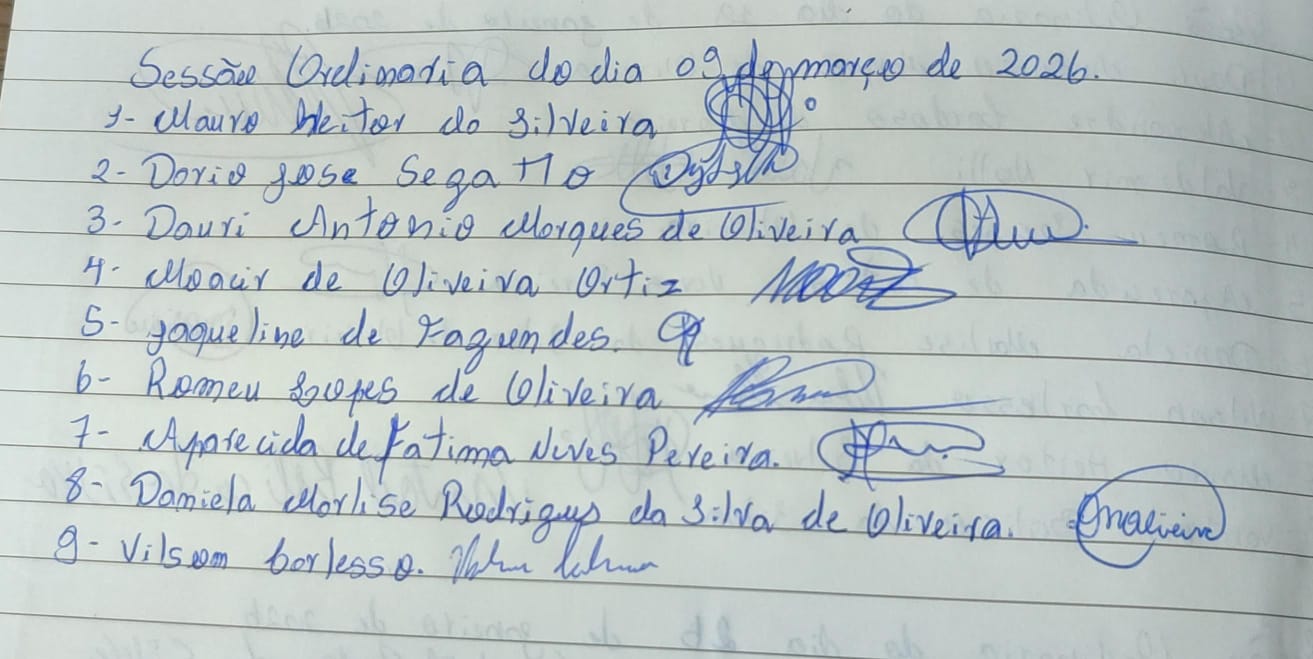 Sessão Ordinaria do dia 09 de março de 2026.
1- Mauro Heitor da Silveira
2- Dorio Jose Segatto
3- Dauri Antonio Marques de Oliveira
4- Moacir de Oliveira Ortiz
5- Jaqueline de Fagundes.
6- Romeu Lopes de Oliveira
7- Aparecida de Fatima Nives Pereira.
8- Daniela Marlise Rodrigues da Silva de Oliveira.
9- Vilsom borlesso.